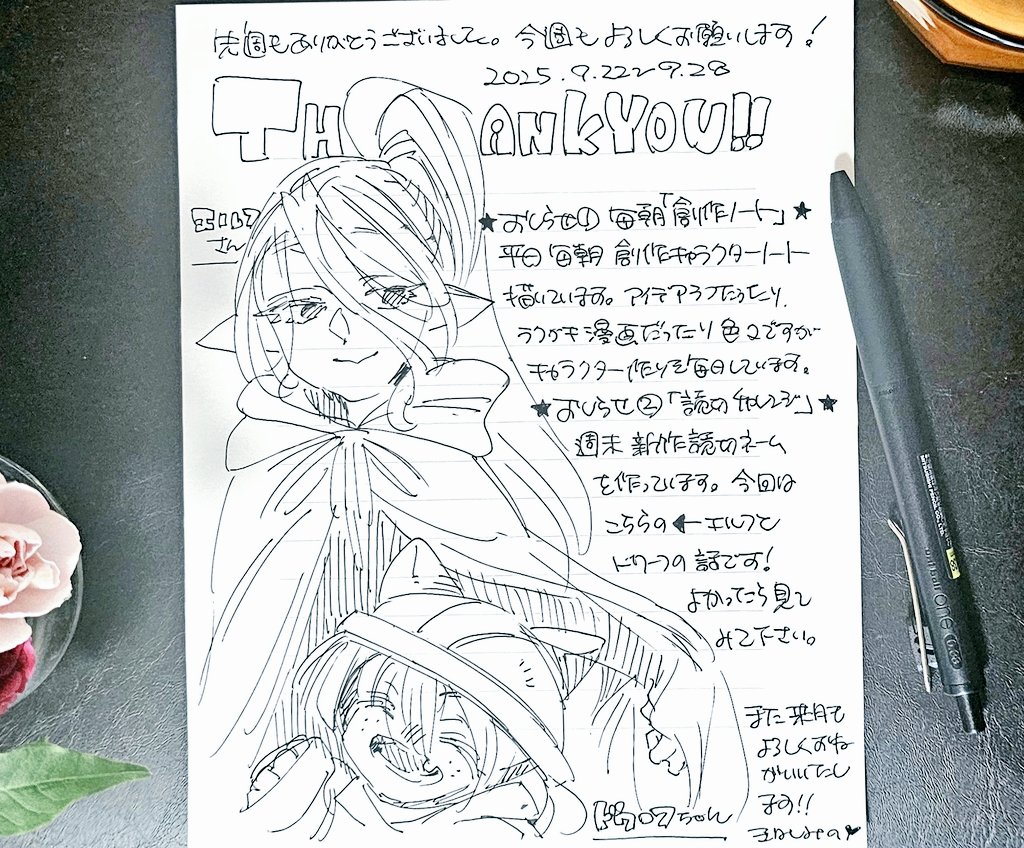 先週もありがとうございました。今週もよろしくお願いします！
2025.9.22~9.28
THANKYOU!!
エルフ
さん
★おしらせ① 毎朝「創作ノート」★
平日毎朝 創作キャラクターノート
描いています。アイデアラフだったり、
ラクガキ漫画だったり色々ですが
キャラクター作りを毎日しています。
★おしらせ②「読切チャレンジ」★
週末 新作読切ネーム
を作っています。今回は
こちらの←エルフと
ドワーフの話です！
よかったら見て
みて下さい。
また来月で
よろしくおね
がいいたし
ます!!
ドワーフちゃん
uni-ball one